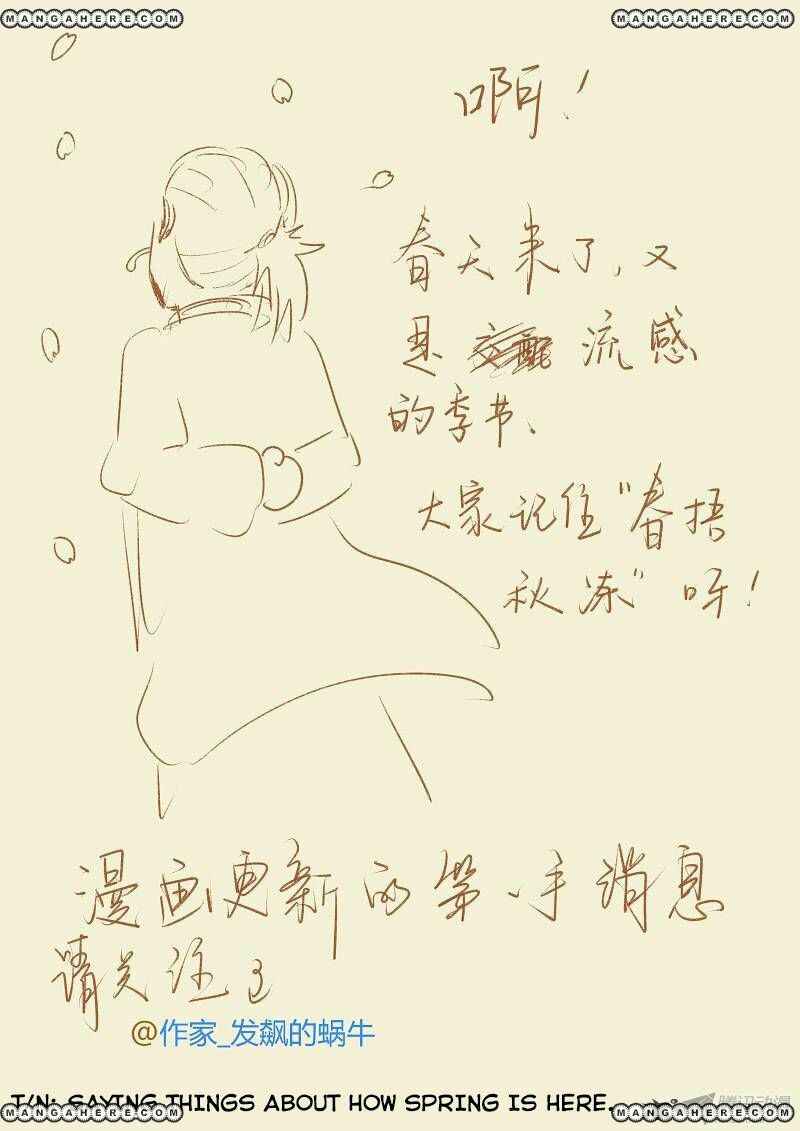 MANGAHERE.COM MANGAHERE.COM
啊！
春天来了，又
是交配流感
的季节、
大家记住"春捂
秋冻"呀！
漫画更新的第一手消息
请关注
@作家_发飙的蜗牛
T/N: SAYING THINGS ABOUT HOW SPRING IS HERE.
MANGAHERE.COM MANGAHERE.COM
腾讯动漫